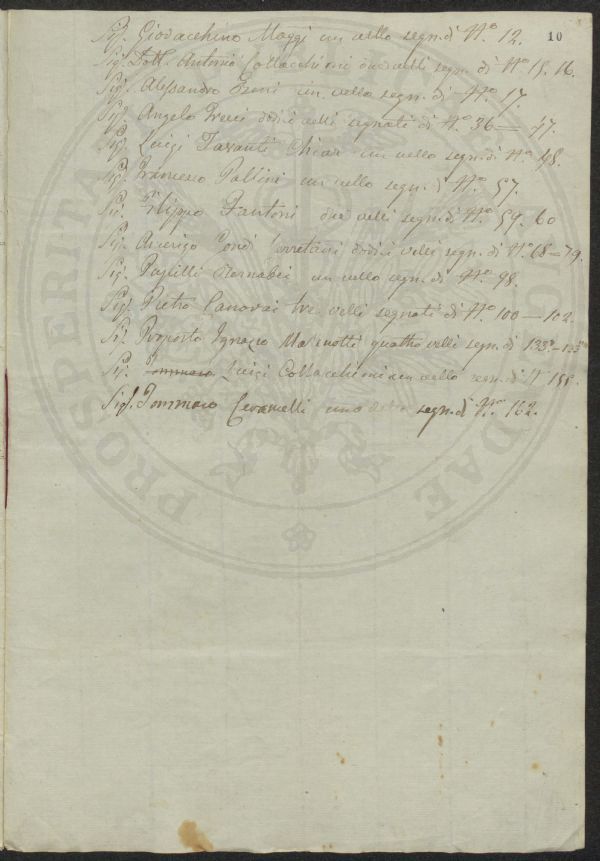 10
Sig. Giovacchino Maggi un vello segn. di N.º 12.
Sig. Dott. Antonio Collacchioni due velli segn. di N.º 15. 16.
Sig. Alessandro un vello segn. di N.º 17.
Sig. Angelo dodici velli segnati di N.º 36 — 47.
Sig. Luigi un vello segn. di N.º 48.
Sig. Francesco un vello segn. di N.º 57.
Sig. Filippo Fantoni due velli segn. di N.º 59. 60
Sig. Amerigo dodici velli segn. di N.º 68 — 79.
Sig. Bernabei un vello segn. di N.º 98.
Sig. Pietro Canovai tre velli segnati di N.º 100 — 102.
Sig. Proposto Ignazio quattro velli segn. di
Sig. Tommaso Luigi Collacchioni un vello segn. di N.º
Sig. Tommaso Ceramelli uno segn. di N.º 162.
PROSPERITA
DAE